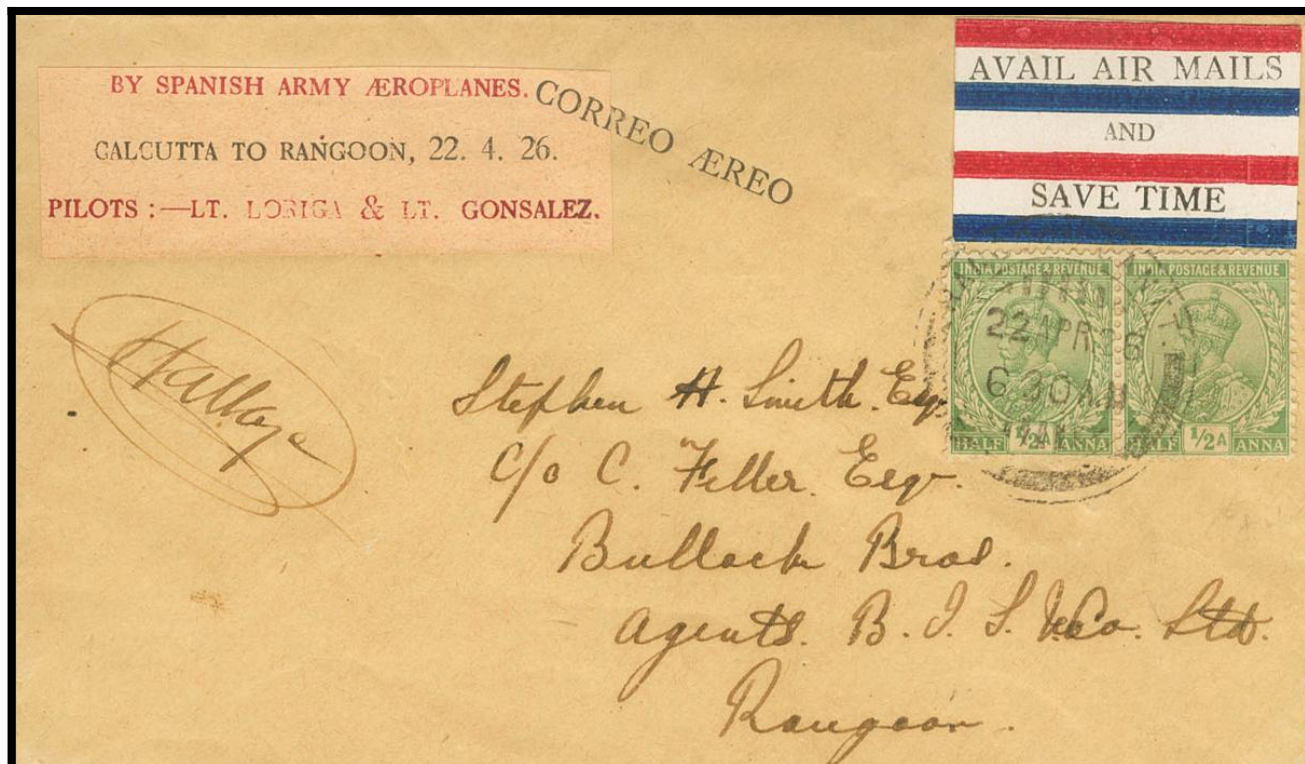 BY SPANISH ARMY ÆROPLANES.
CALCUTTA TO RANGOON, 22. 4. 26.
PILOTS :—LT. LORIGA & LT. GONSALEZ.
CORREO ÆREO
AVAIL AIR MAILS
AND
SAVE TIME
INDIA POSTAGE & REVENUE
HALF 1/2A ANNA
INDIA POSTAGE & REVENUE
HALF 1/2A ANNA
22 APR 26
6 30 AM
Stephen H. Smith. Esq
C/o C. Feller. Esqr.
Bullock Bros.
Agents. B. I. S. N. Co. Ltd.
Rangoon.